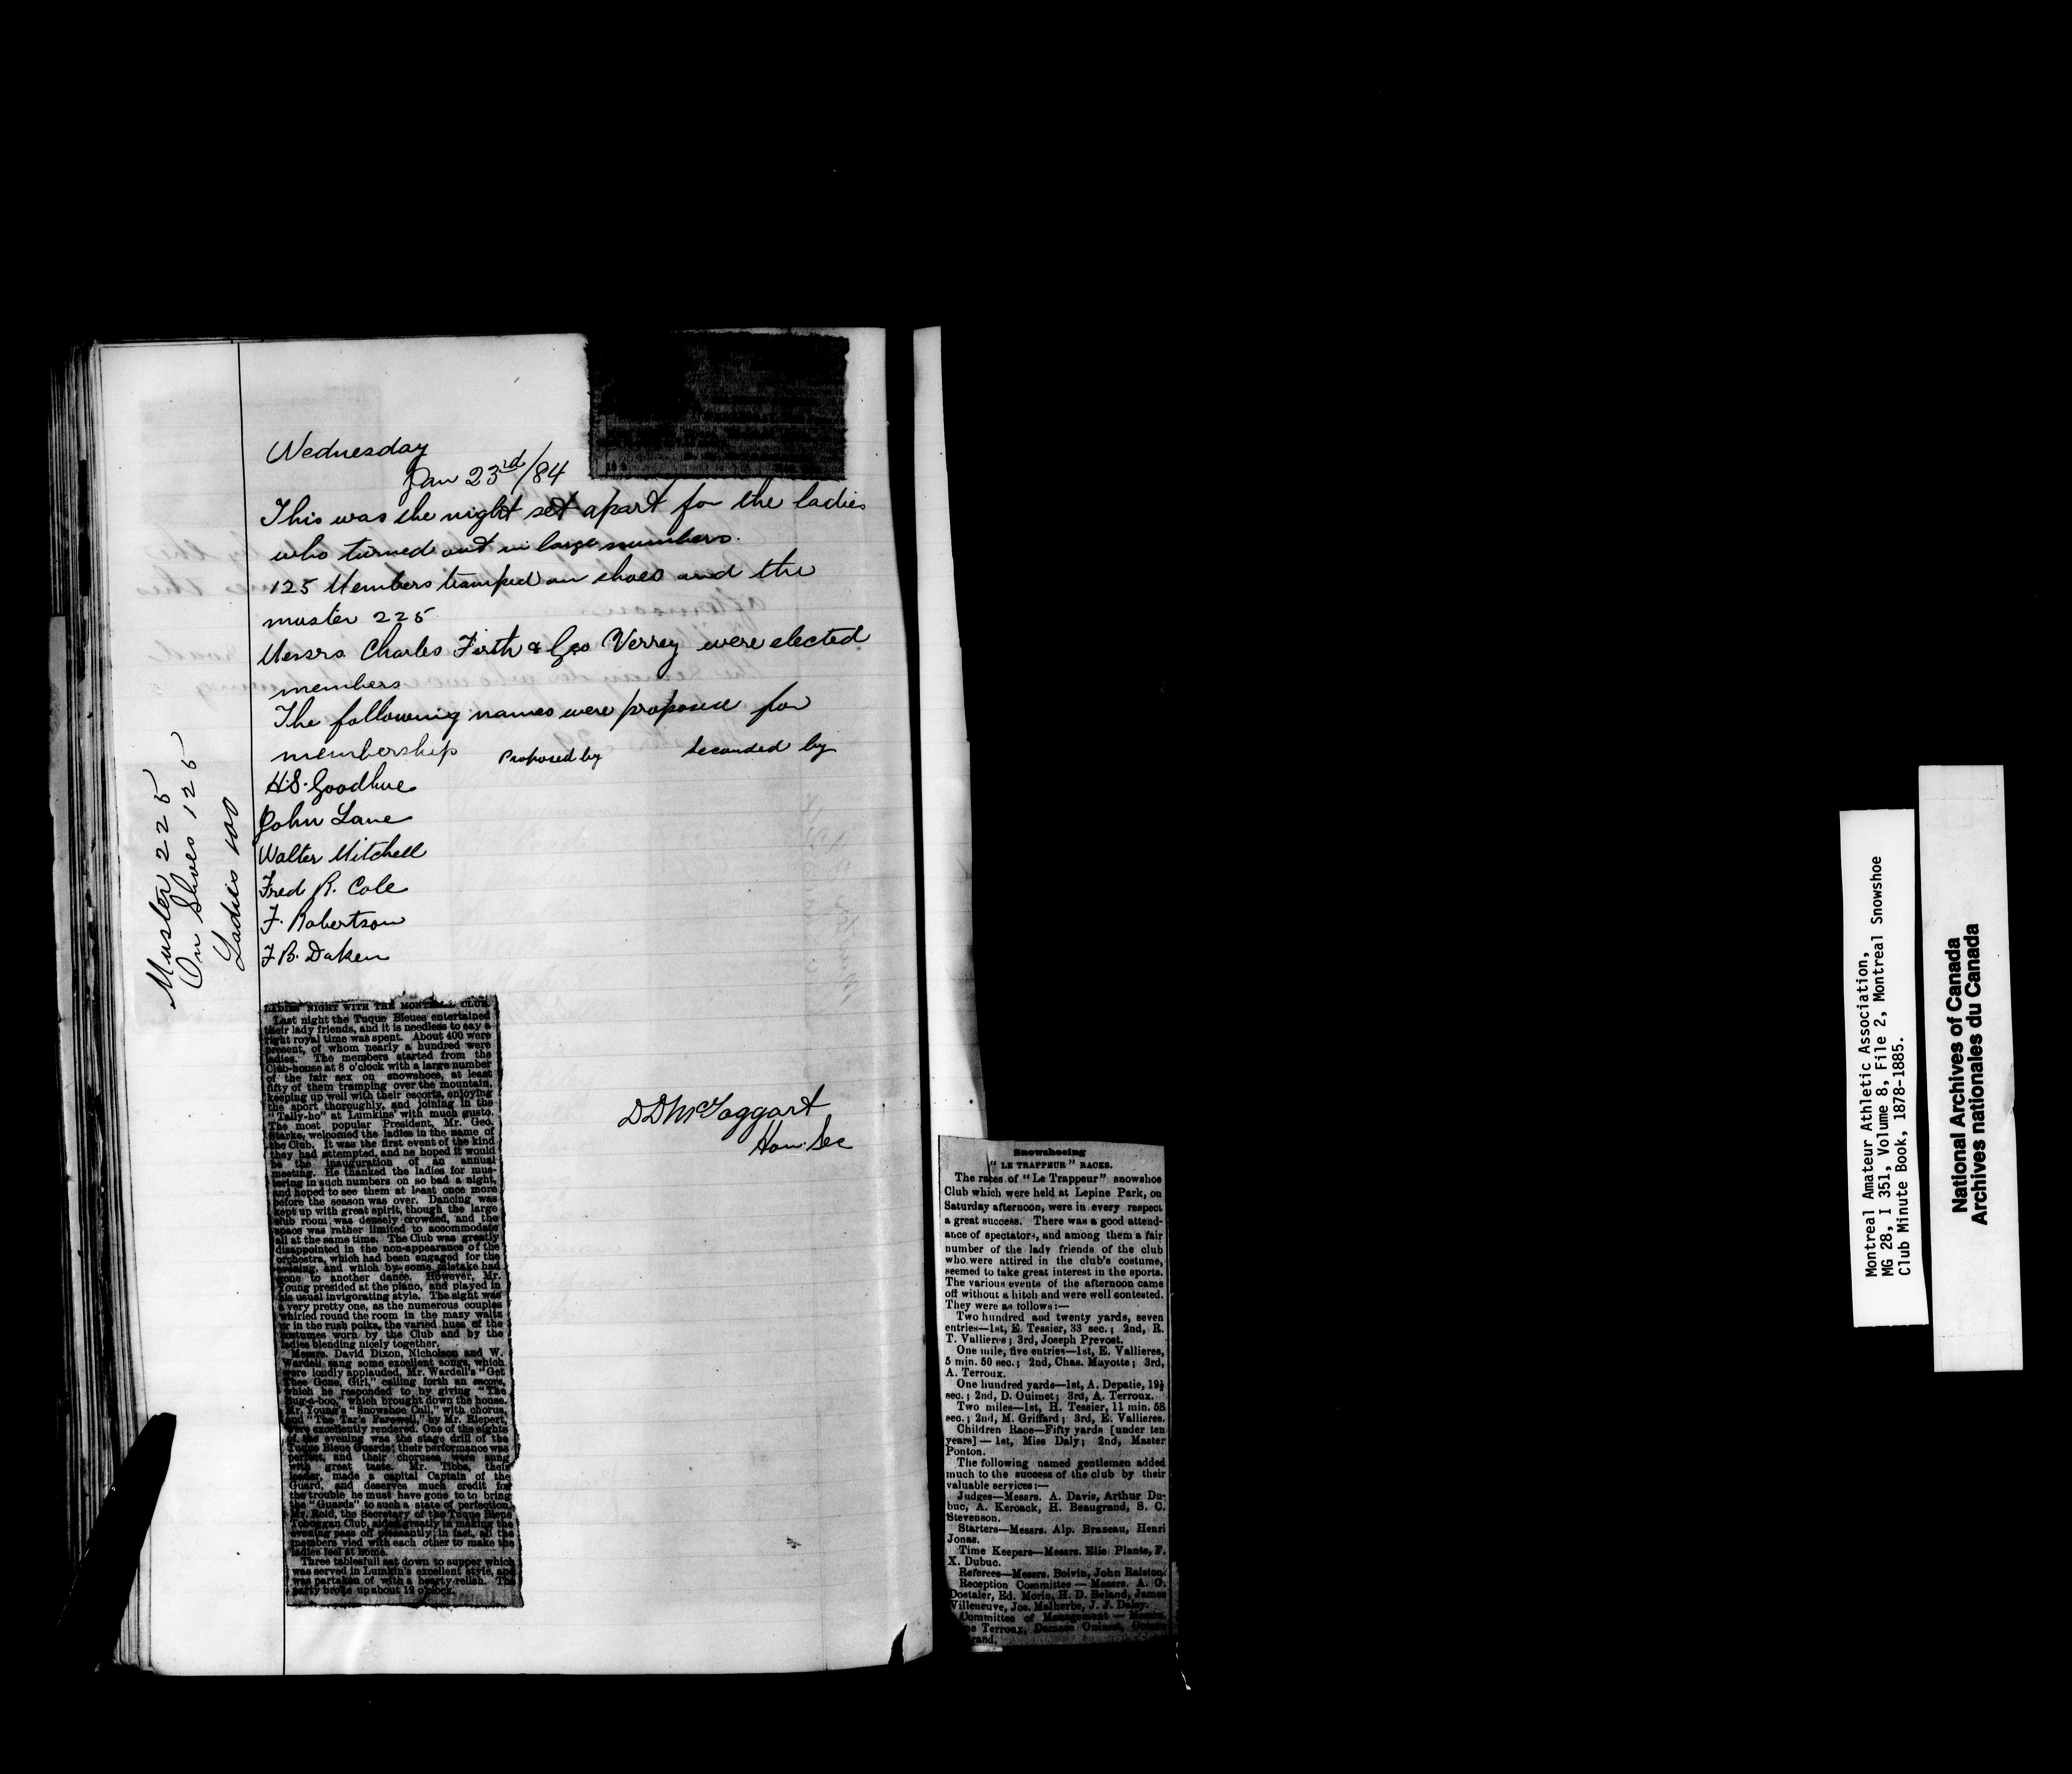 Wednesday
Jan 23rd/84
This was the night set apart for the ladies
who turned out in large numbers.
125 Members tramped on shoes and the
muster 225
Messrs Charles Firth & Geo Verrey were elected
members
The following names were proposed for
membership Proposed by Seconded by
H.S. Goodhue
John Lane
Walter Mitchell
Fred R. Cole
F. Robertson
F B. Daken
Muster 225
On Shoes 125
Ladies 100
LADIES' NIGHT WITH THE CLUB.
Last night the Tuque Bleues entertained
their lady friends, and it is needless to say a
right royal time was spent. About 400 were
present, of whom nearly a hundred were
ladies. The members started from the
Club-house at 8 o'clock with a large number
of the fair sex on snowshoes, at least
fifty of them tramping over the mountain,
keeping up well with their escorts, enjoying
the sport thoroughly, and joining in the
"Tally-ho" at Lumkins' with much gusto.
The most popular President, Mr. Geo.
Starke, welcomed the ladies in the name of
the Club. It was the first event of the kind
they had attempted, and he hoped it would
be the inauguration of an annual
meeting. He thanked the ladies for mus-
tering in such numbers on so bad a night,
and hoped to see them at least once more
before the season was over. Dancing was
kept up with great spirit, though the large
club room was densely crowded, and the
space was rather limited to accommodate
all at the same time. The Club was greatly
disappointed in the non-appearance of the
orchestra, which had been engaged for the
evening, and which by some mistake had
gone to another dance. However, Mr.
Young presided at the piano, and played in
his usual invigorating style. The sight was
a very pretty one, as the numerous couples
whirled round the room in the mazy waltz
or in the rush polka, the varied hues of the
costumes worn by the Club and by the
ladies blending nicely together.
Messrs. David Dixon, Nicholson and W.
Wardell sang some excellent songs, which
were loudly applauded, Mr. Wardell's "Get
Thee Gone, Girl," calling forth an encore,
which he responded to by giving "The
Bug-a-boo," which brought down the house.
Mr. Young's "Snowshoe Call," with chorus,
and "The Tar's Farewell," by Mr. Riepert,
were excellently rendered. One of the sights
of the evening was the stage drill of the
Tuque Bleue Guards; their performance was
perfect, and their choruses were sung
with great taste. Mr. Tibbs, their
leader, made a capital Captain of the
Guard, and deserves much credit for
the trouble he must have gone to to bring
the "Guards" to such a state of perfection.
Mr. Reid, the Secretary of the Tuque Bleue
Toboggan Club, aided greatly in making the
evening pass off pleasantly; in fact, all the
members vied with each other to make the
ladies feel at home.
Three tablesfull sat down to supper which
was served in Lumkin's excellent style, and
was partaken of with a hearty relish. The
party broke up about 12 o'clock.
DD McTaggart
Hon. Sec
Snowshoeing
"LE TRAPPEUR" RACES.
The races of "Le Trappeur" snowshoe
Club which were held at Lepine Park, on
Saturday afternoon, were in every respect
a great success. There was a good attend-
ance of spectators, and among them a fair
number of the lady friends of the club
who were attired in the club's costume,
seemed to take great interest in the sports.
The various events of the afternoon came
off without a hitch and were well contested.
They were as follows:—
Two hundred and twenty yards, seven
entries—1st, E. Tessier, 33 sec.; 2nd, R.
T. Vallieres; 3rd, Joseph Prevost.
One mile, five entries—1st, E. Vallieres,
5 min. 50 sec.; 2nd, Chas. Mayotte; 3rd,
A. Terroux.
One hundred yards—1st, A. Depatie, 19½
sec.; 2nd, D. Ouimet; 3rd, A. Terroux.
Two miles—1st, H. Tessier, 11 min. 58
sec.; 2nd, M. Griffard; 3rd, E. Vallieres.
Children Race—Fifty yards [under ten
years]—1st, Miss Daly; 2nd, Master
Ponton.
The following named gentlemen added
much to the success of the club by their
valuable services:—
Judges—Messrs. A. Davis, Arthur Du-
buc, A. Keroack, H. Beaugrand, S. C.
Stevenson.
Starters—Messrs. Alp. Brazeau, Henri
Jonas.
Time Keepers—Messrs. Elie Plante, F.
X. Dubuc.
Referees—Messrs. Boivin, John Ralston.
Reception Committee — Messrs. A. O.
Dostaler, Ed. Morin, H. D. Beland, James
Villeneuve, Jos. Malherbe, J. J. Daley.
Committee of Management — Messrs.
Terroux, Damase Ouimet,
Montreal Amateur Athletic Association,
MG 28, I 351, Volume 8, File 2, Montreal Snowshoe
Club Minute Book, 1878-1885.
National Archives of Canada
Archives nationales du Canada